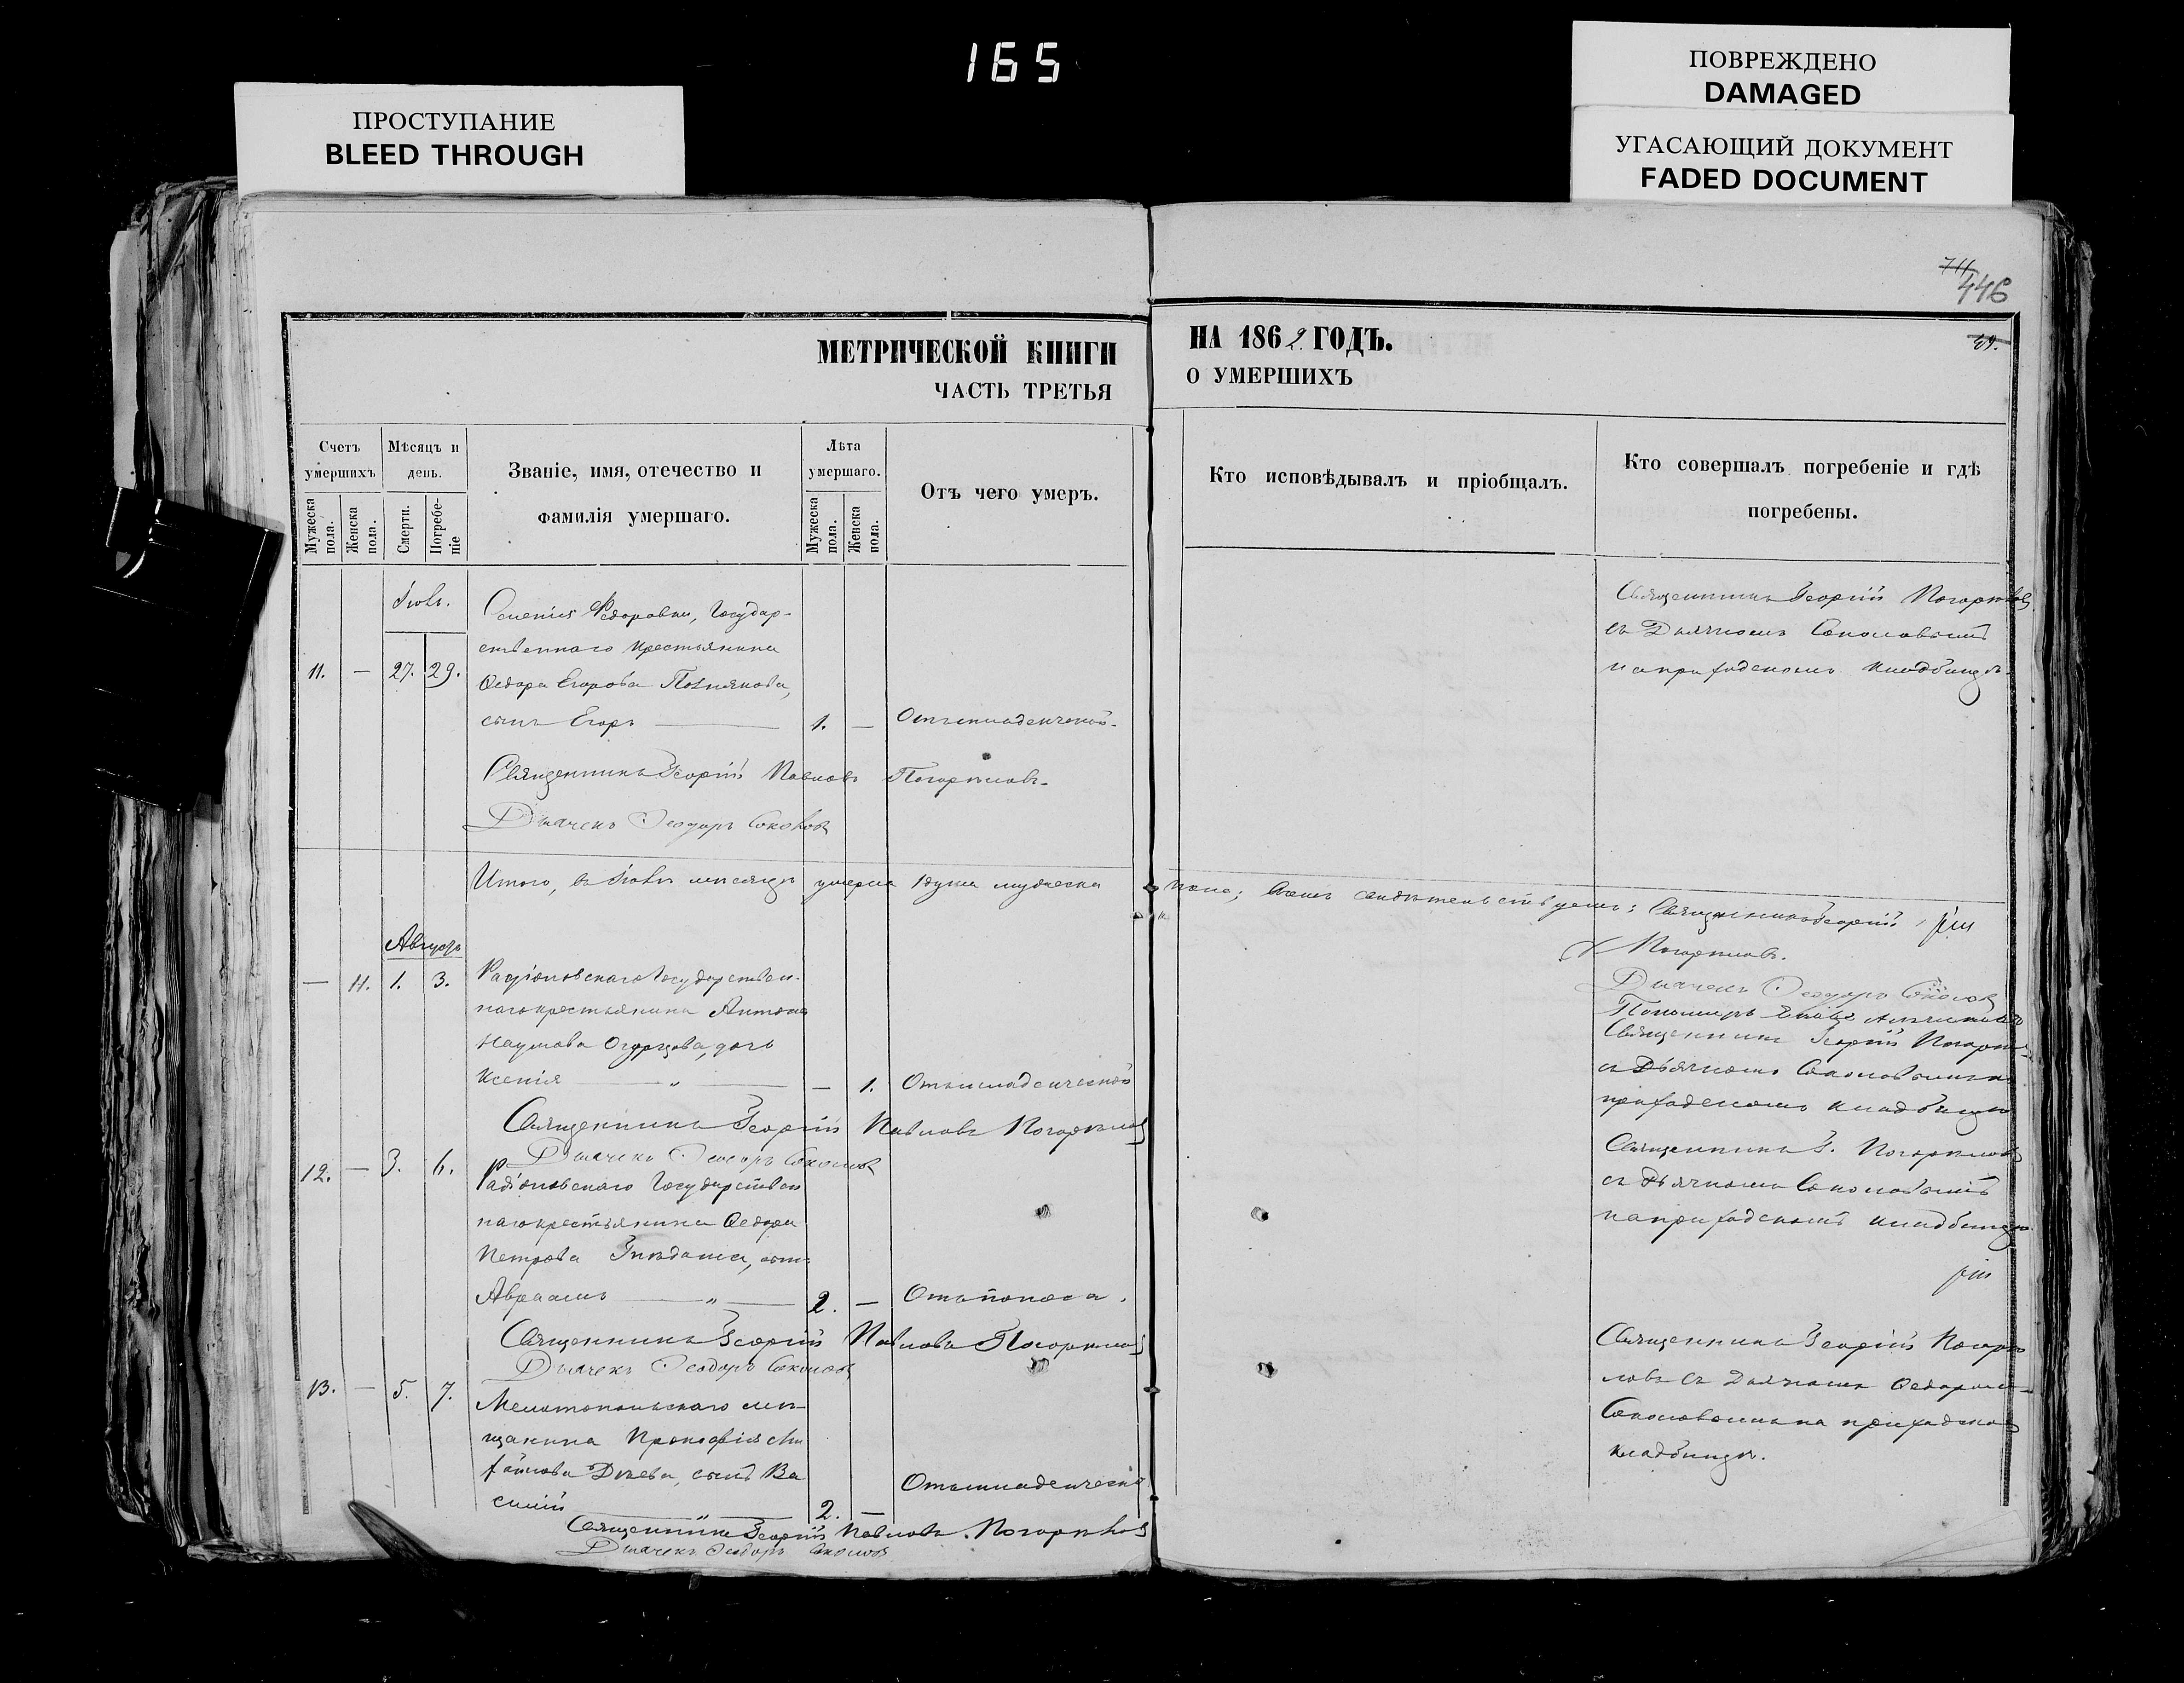 165
ПРОСТУПАНИЕ
BLEED THROUGH
ПОВРЕЖДЕНО
DAMAGED
УГАСАЮЩИЙ ДОКУМЕНТ
FADED DOCUMENT
446
МЕТРИЧЕСКОЙ КНИГИ
ЧАСТЬ ТРЕТЬЯ
НА 1862 ГОДЪ.
О УМЕРШИХЪ
39.
Счетъ умершихъ
Мужеска пола.
Женска пола.
Мѣсяцъ и день.
Смерти.
Погребеніе
Званіе, имя, отечество и
фамилія умершаго.
Лѣта умершаго.
Мужеска пола.
Женска пола.
Отъ чего умеръ.
Кто исповѣдывалъ и пріобщалъ.
Кто совершалъ погребеніе и гдѣ
погребены.
Іюль.
11. — 27. 29.
Федоровки, Государ-
ственнаго крестьянина
Ѳедора Егорова
сынъ Егоръ — 1. — Отъ младенческой.
Священникъ Георгій Погорѣловъ
съ Дьячкомъ Соколовымъ
на приходскомъ кладбищѣ.
Священникъ Георгій Павловъ Погорѣловъ.
Дьячекъ Ѳеодоръ Соколовъ
Итого, въ Іюлѣ мѣсяцѣ умерла 1 душа мужеска
пола; въ чемъ свидѣтельствуемъ: Священникъ Георгій
Погорѣловъ.
Дьячекъ Ѳеодоръ Соколовъ
Пономарь
Августъ
— 11. 1. 3.
Радіоновскаго Государствен-
наго крестьянина Антона
Наумова Огурцова, дочь
Ксенія — „ — — 1. Отъ младенческой
Священникъ Георгій Погорѣ-
съ Дьячкомъ Соколовымъ на
приходскомъ кладбищѣ
Священникъ Георгій Павловъ Погорѣловъ
Дьячекъ Ѳеодоръ Соколовъ
12. — 3. 6.
Радіоновскаго Государствен
наго крестьянина Ѳедора
Петрова Гнѣдаша, сынъ
Авраамъ — „ — 2. — Отъ поноса.
Священникъ Г. Погорѣловъ
съ Дьячкомъ Соколовымъ
на приходскомъ кладбищѣ
Священникъ Георгій Павловъ Погорѣловъ
Дьячекъ Ѳеодоръ Соколовъ
13. — 5. 7.
Мелитопольскаго мѣ-
щанина Прокофія Ми
хайлова сынъ Ва
силій — „ — 2. — Отъ младенческой
Священникъ Георгій Погорѣ
ловъ съ Дьячкомъ Ѳедоромъ
Соколовымъ на приходскомъ
кладбищѣ.
Священникъ Георгій Павловъ Погорѣловъ
Дьячекъ Ѳеодоръ Соколовъ